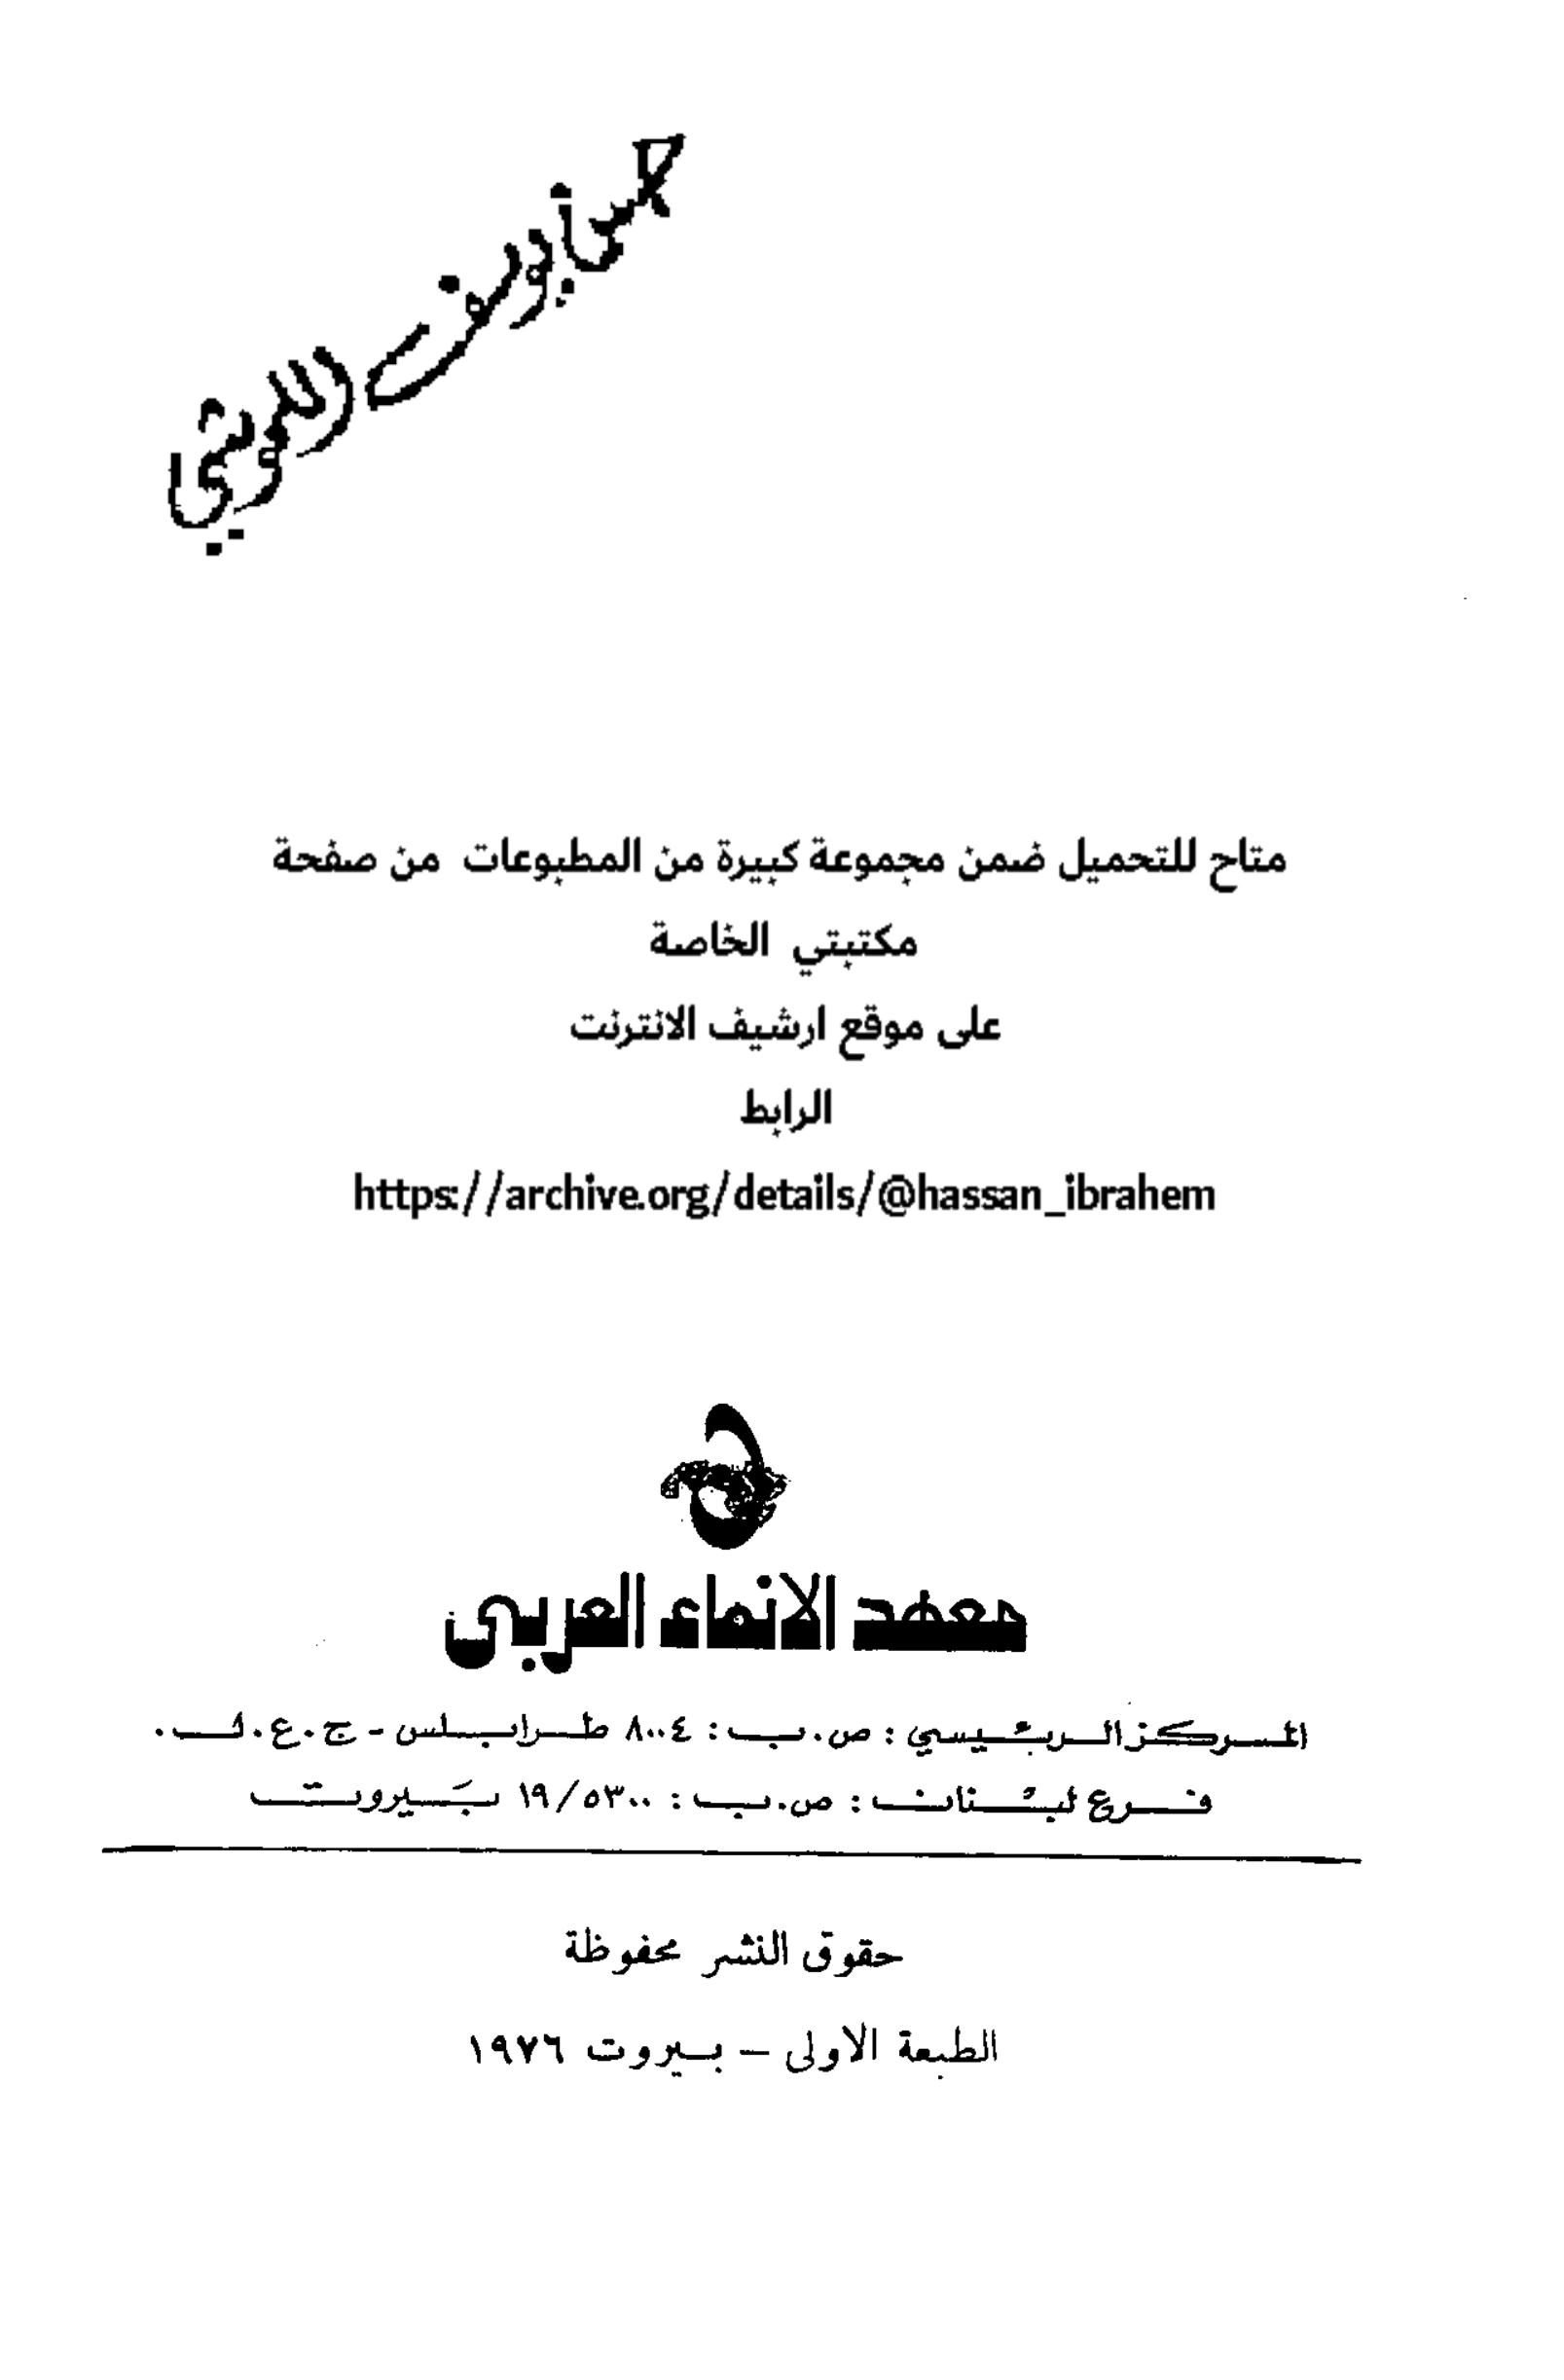 متاح للتحميل ضمن مجموعة كبيرة من المطبوعات من صفحة
مكتبتي الخاصة
على موقع ارشيف الانترنت
الرابط
https://archive.org/details/@hassan_ibrahem
معهد الانماء العربي
المركز الرئيسي : ص.ب : ٨٠٠٤ طرابلس - ج.ع.ل.
فرع لبنان : ص.ب : ١٩/٥٣٠٠ بيروت
حقوق النشر محفوظة
الطبعة الاولى – بيروت ١٩٧٦